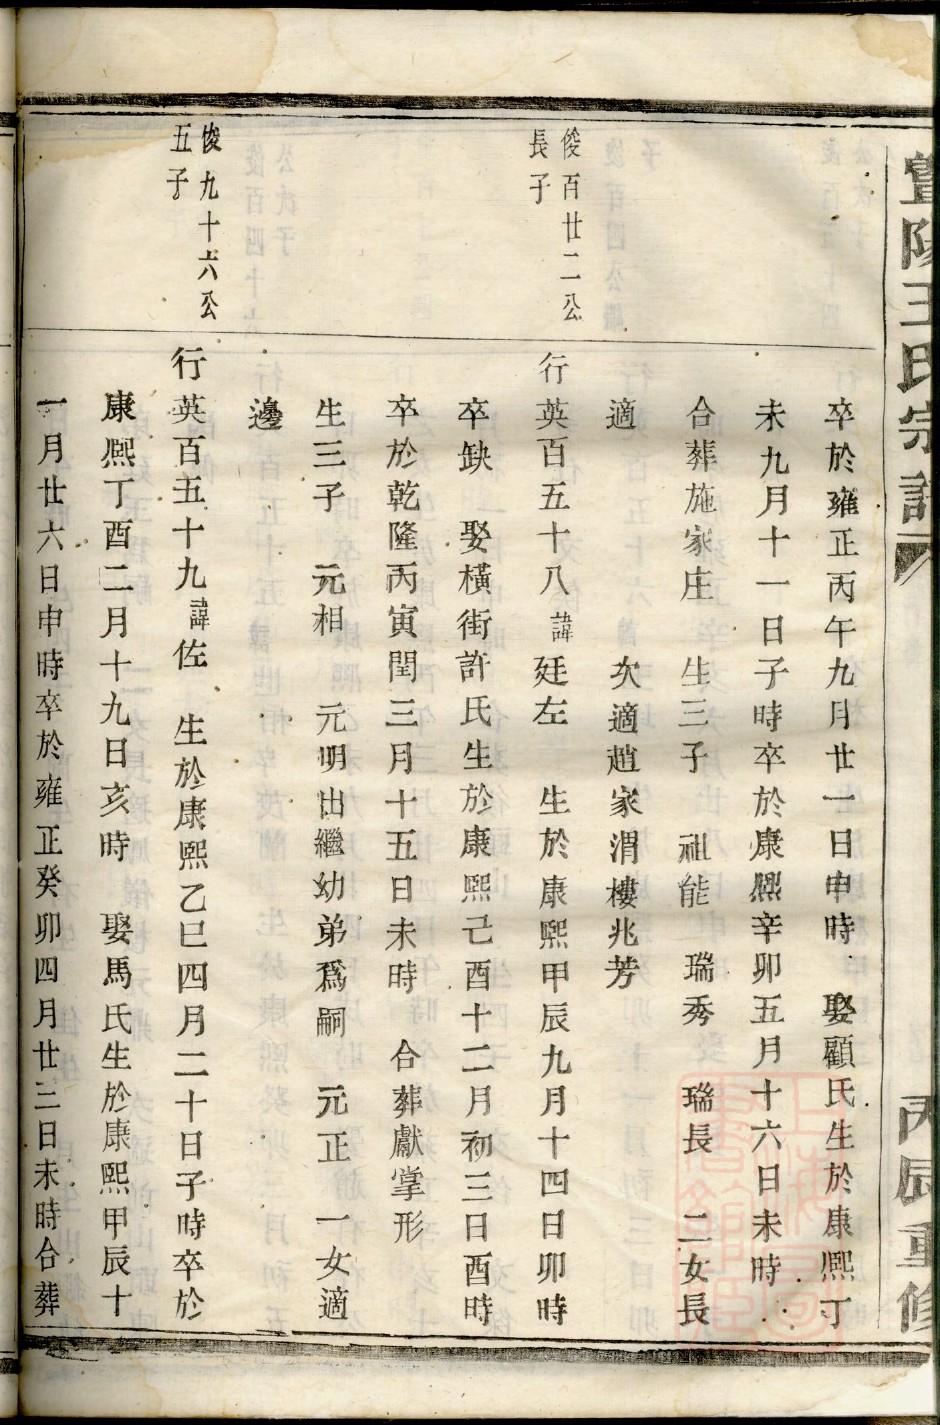 暨陽王氏宗譜
丙辰重修
卒於雍正丙午九月廿一日申時 娶顧氏生於康熙丁
未九月十一日子時卒於康熙辛卯五月十六日未時
合葬施家庄 生三子 祖能 瑞秀 瑞長 二女長
適 次適趙家渭樓兆芳
俊百廿二公
長子
行英百五十八諱廷左 生於康熙甲辰九月十四日卯時
卒缺 娶橫街許氏生於康熙己酉十二月初三日酉時
卒於乾隆丙寅閏三月十五日未時 合葬獻掌形
生三子 元相 元明出繼幼弟爲嗣 元正 一女適
邊
俊九十六公
五子
行英百五十九諱佐 生於康熙乙巳四月二十日子時卒於
康熙丁酉二月十九日亥時 娶馬氏生於康熙甲辰十
一月廿六日申時卒於雍正癸卯四月廿三日未時合葬